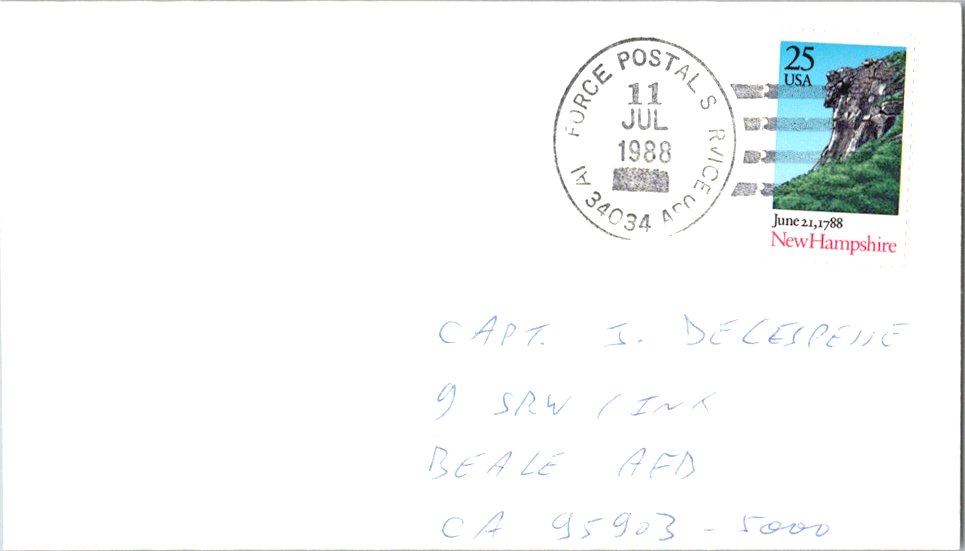 AI FORCE POSTAL S RVICE
11
JUL
1988
34034 APO
25
USA
June 21, 1788
New Hampshire
CAPT. J. DELESPESSE
9 SRW / INK
BEALE AFB
CA 95903-5000